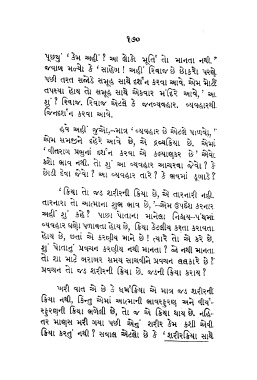 ૧૭૦
પૂછ્યું 'કેમ અહીં ? આ લોકો મૂર્તિ તો માનતા નથી.'
જવાબ મળ્યો કે 'સાહેબ ! અહીં રિવાજ છે છોકરો પરણે
પછી તરત સજોડે સમૂહ સાથે દર્શન કરવા આવે. એમ મોટી
તપસ્યા હોય તો સમૂહ સાથે એકવાર મંદિરે આવે,' આ
શું ? રિવાજ. રિવાજ એટલે કે જનવ્યવહાર. વ્યવહારથી
જિનદર્શન કરવા આવે.
હવે અહીં જુઓ,–માત્ર 'વ્યવહાર છે એટલે પાળવો,'
એમ સમજીને દહેરે આવે છે, એ દ્રવ્યક્રિયા છે. એમાં
'વીતરાગ પ્રભુનાં દર્શન કરવા એ કલ્યાણકર છે' એવો
કશો ભાવ નથી. તો શું આ વ્યવહાર આચરવા જેવો ? કે
છોડી દેવા જેવો ? આ વ્યવહાર તારે ? કે ભવમાં ડુબાડે ?
'ક્રિયા તો જડ શરીરની ક્રિયા છે, એ તારનારી નહી.
તારનારા તો આત્માના શુભ ભાવ છે,'–એમ ઉપદેશ કરનાર
અહીં શું કહે ? પાછા પોતાના માનેલા નિશ્ચય-પંથમાં
વ્યવહાર ઘણો પળાવતા હોય છે, ક્રિયા કેટલીય કરતા કરાવતા
હોય છે, છતાં એ કરણીય માને છે ! ત્યારે તો એ કરે છે.
શું પોતાનું પ્રવચન કરણીય નથી માનતા ? એ નથી માનતા
તો શા માટે બરાબર સમય સાચવીને પ્રવચન લલકારે છે ?
પ્રવચન તો જડ શરીરની ક્રિયા છે. જડની ક્રિયા કરાય ?
ખરી વાત એ છે કે ધર્મક્રિયા એ માત્ર જડ શરીરની
ક્રિયા નથી, કિન્તુ એમાં આત્માની ભાવસ્ફુરણ અને વીર્ય-
સ્ફુરણની ક્રિયા ભળેલી છે, તો જ એ ક્રિયા થાય છે. નહિ-
તર માણસ મરી ગયા પછી એનું શરીર કેમ કશી એવી
ક્રિયા કરતું નથી ? સવાલ એટલો છે કે 'શરીરક્રિયા સાથે